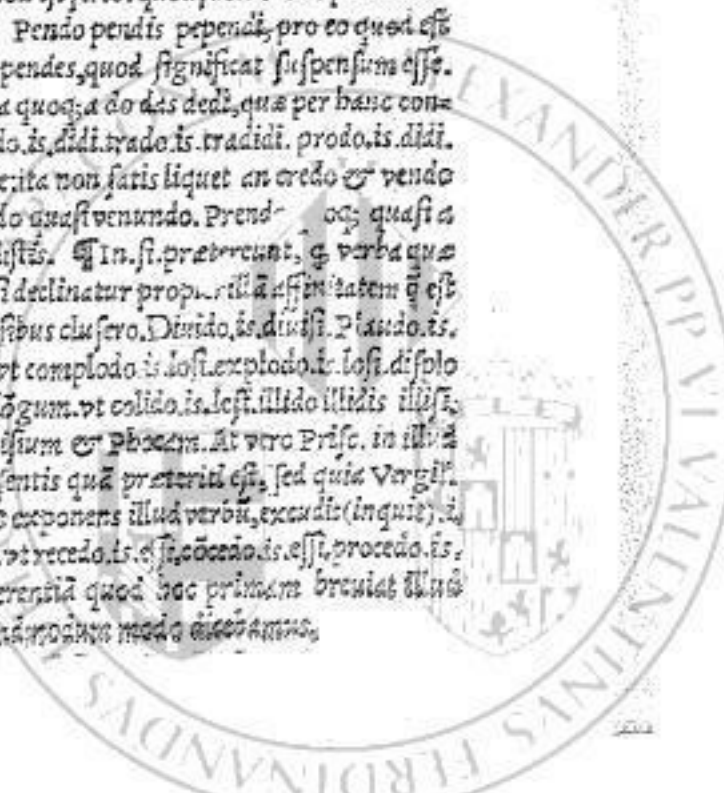 Pendo pendis pependi, pro eo quod eſt
pendes, quod ſignificat ſuſpenſum eſſe.
a quoq; a do das dedi, quæ per hanc con=
do.is.didi.trado.is.tradidi. prodo.is.didi.
ita non ſatis liquet an credo & vendo
do quaſi venundo. quaſi a
¶ In.ſi.prætereunt, verba quæ
ſi declinatur illā affinitatem q̄ eſt
ſibus cluſero. Diuido.is.diuiſi. Plaudo.is.
vt complodo.is.loſi.explodo.is.loſi.diſplo
ōgum.vt colido.is.leſi.illido illidis illiſi,
& Phocam. At vero Priſc. in illud
ſentis quā præteriti eſt, ſed quia Vergil.
exponens illud verbū, excudis (inquit) .i.
vt recedo.is.eſſi, cōcedo.is.eſſi, procedo.is.
erentiā quod hoc primam breuiat illud
modo dicebamus.
ALEXANDER PP VI VALENTINVS FERDINANDVS